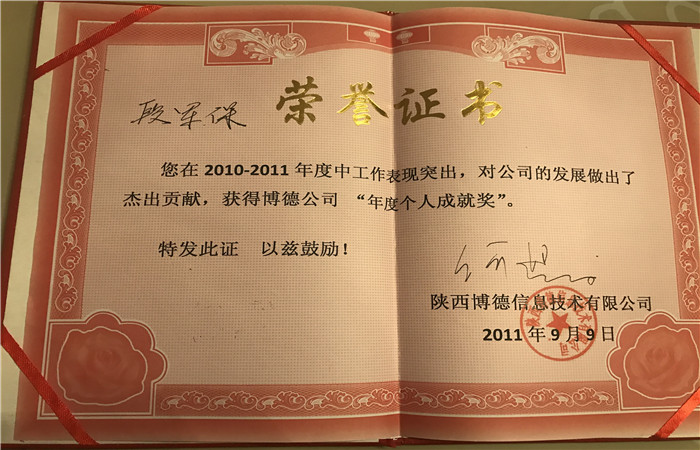 荣誉证书
段军保
您在 2010-2011 年度中工作表现突出，对公司的发展做出了
杰出贡献，获得博德公司 “年度个人成就奖”。
特发此证 以兹鼓励！
陕西博德信息技术有限公司
2011 年 9 月 9 日